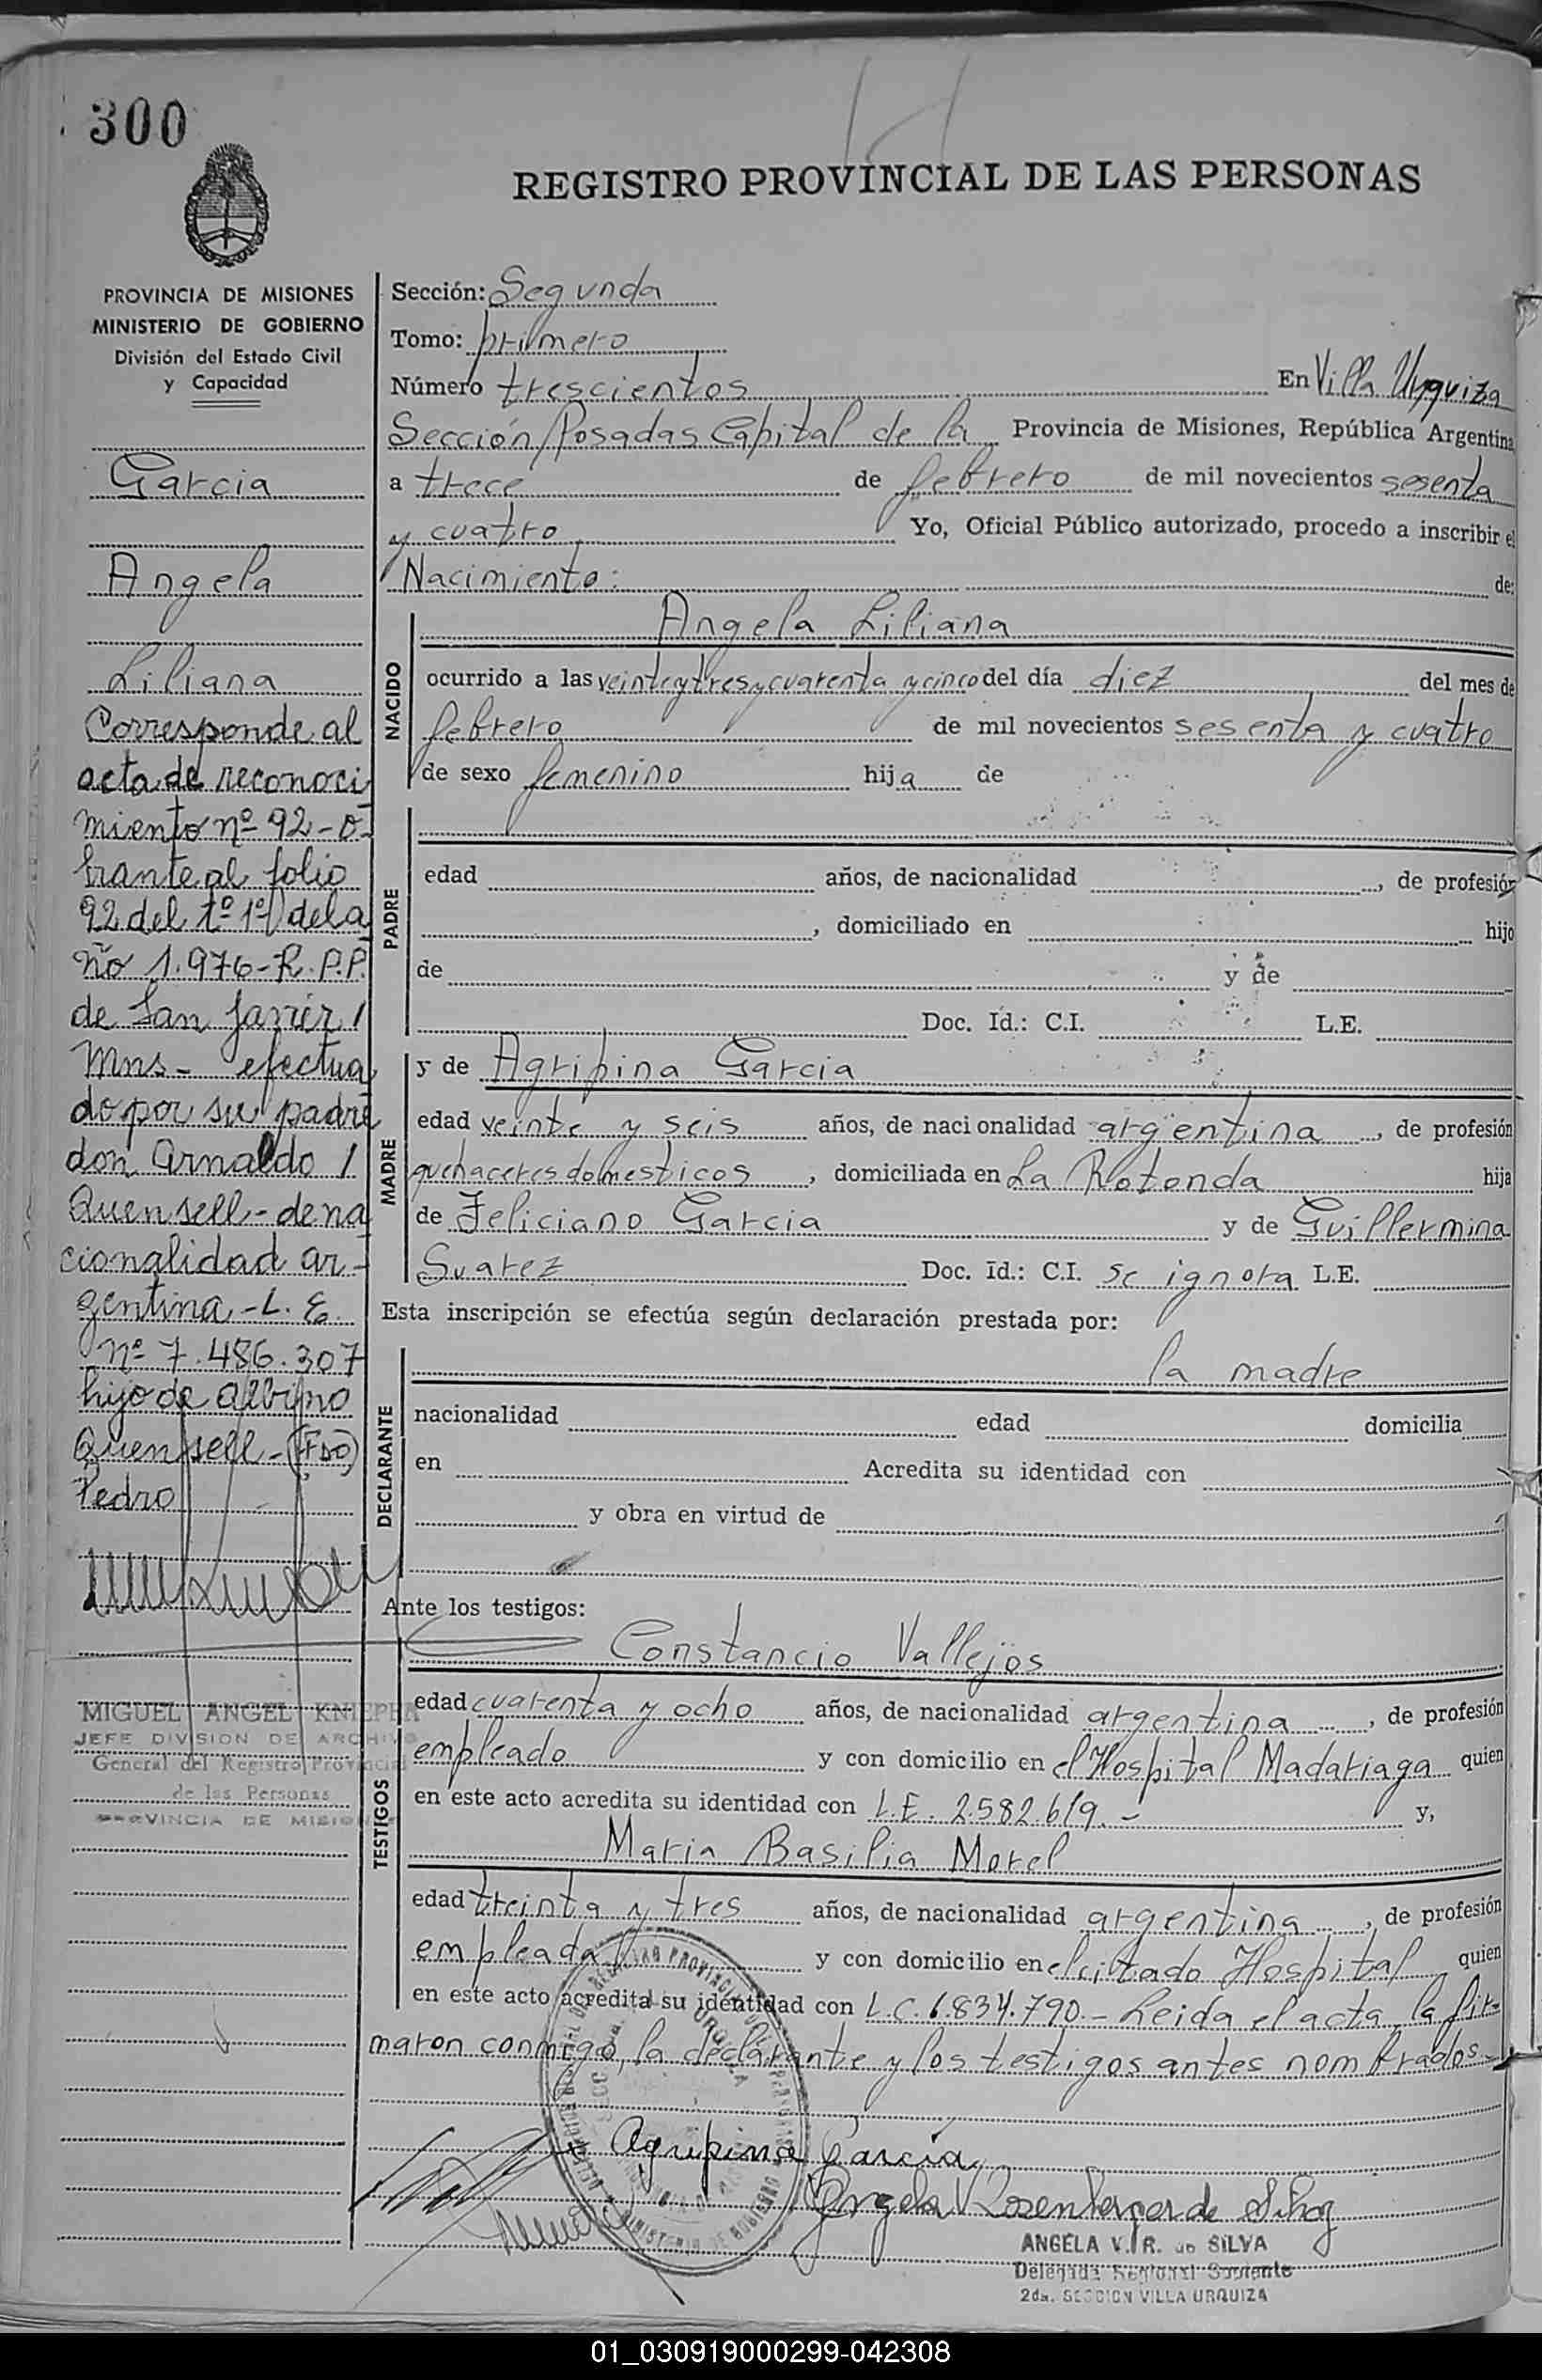 300
REGISTRO PROVINCIAL DE LAS PERSONAS
PROVINCIA DE MISIONES
MINISTERIO DE GOBIERNO
División del Estado Civil
y Capacidad
Garcia
Angela
Liliana
Corresponde al
acta de reconoci
miento nº 92 - o-
brante al folio
92 del tº 1º del a
ño 1.976 - R.P.P.
de San Javier /
Mns - efectua
do por su padre
don Arnaldo /
Quensell - de na
cionalidad ar-
gentina - L. E.
nº 7.486.307
hijo de Albino
Quensell - (FDO)
Pedro
MIGUEL ANGEL KNIEPER
JEFE DIVISION DE ARCHIVO
General del Registro Provincial
de las Personas
PROVINCIA DE MISIONES
Sección: Segunda
Tomo: primero
Número trescientos En Villa Urquiza
Sección/Posadas Capital de la Provincia de Misiones, República Argentina
a trece de febrero de mil novecientos sesenta
y cuatro Yo, Oficial Público autorizado, procedo a inscribir el
Nacimiento: de:
NACIDO
Angela Liliana
ocurrido a las veinte y tres y cuarenta y cinco del día diez del mes de
febrero de mil novecientos sesenta y cuatro
de sexo femenino hija de
PADRE
edad años, de nacionalidad , de profesión
, domiciliado en hijo
de y de
Doc. Id.: C.I. L.E.
MADRE
y de Agripina Garcia
edad veinte y seis años, de nacionalidad argentina , de profesión
quehaceres domesticos , domiciliada en La Rotonda hija
de Feliciano Garcia y de Guillermina
Suarez Doc. Id.: C.I. se ignora L.E.
Esta inscripción se efectúa según declaración prestada por:
DECLARANTE
la madre
nacionalidad edad domicilia
en Acredita su identidad con
y obra en virtud de
Ante los testigos:
TESTIGOS
Constancio Vallejos
edad cuarenta y ocho años, de nacionalidad argentina , de profesión
empleado y con domicilio en el Hospital Madariaga quien
en este acto acredita su identidad con L.E. 2.582.619.- y,
Maria Basilia Morel
edad treinta y tres años, de nacionalidad argentina , de profesión
empleada y con domicilio en el citado Hospital quien
en este acto acredita su identidad con L.C. 6.834.790.- Leida el acta, la fir-
maron conmigo, la declarante y los testigos antes nombrados.-
Agripina García
Angela V Rosenberger de Silva
ANGELA V. R. de SILVA
Delegada Regional Suplente
2da. SECCION VILLA URQUIZA
01_030919000299-042308